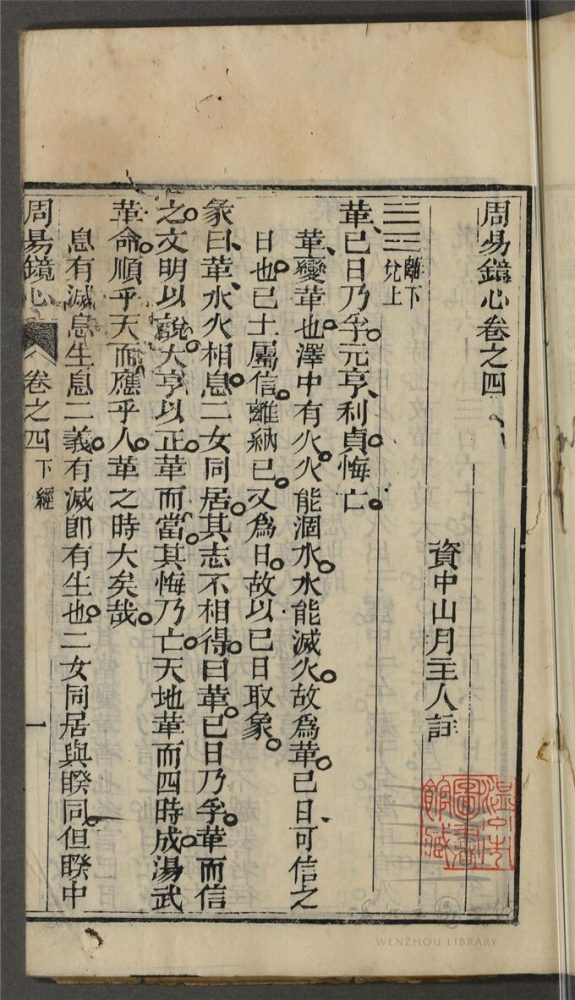 周易鏡心卷之四
資中山月主人註
䷰離下兌上
革、已日乃孚。元亨、利貞。悔亡。
革、變革也。澤中有火。火能涸水。水能滅火。故爲革。已日可信之
日也。已土屬信。離納已。又爲日。故以已日取象。
彖曰、革、水火相息。二女同居。其志不相得。曰革。已日乃孚。革而信
之。文明以說。大亨以正。革而當。其悔乃亡。天地革而四時成。湯武
革命。順乎天而應乎人。革之時大矣哉。
息有滅息生息二義。有滅卽有生也。二女同居與睽同。但睽中
周易鏡心 卷之四 下經 一
溫州市
圖書
館藏
WENZHOU LIBRARY